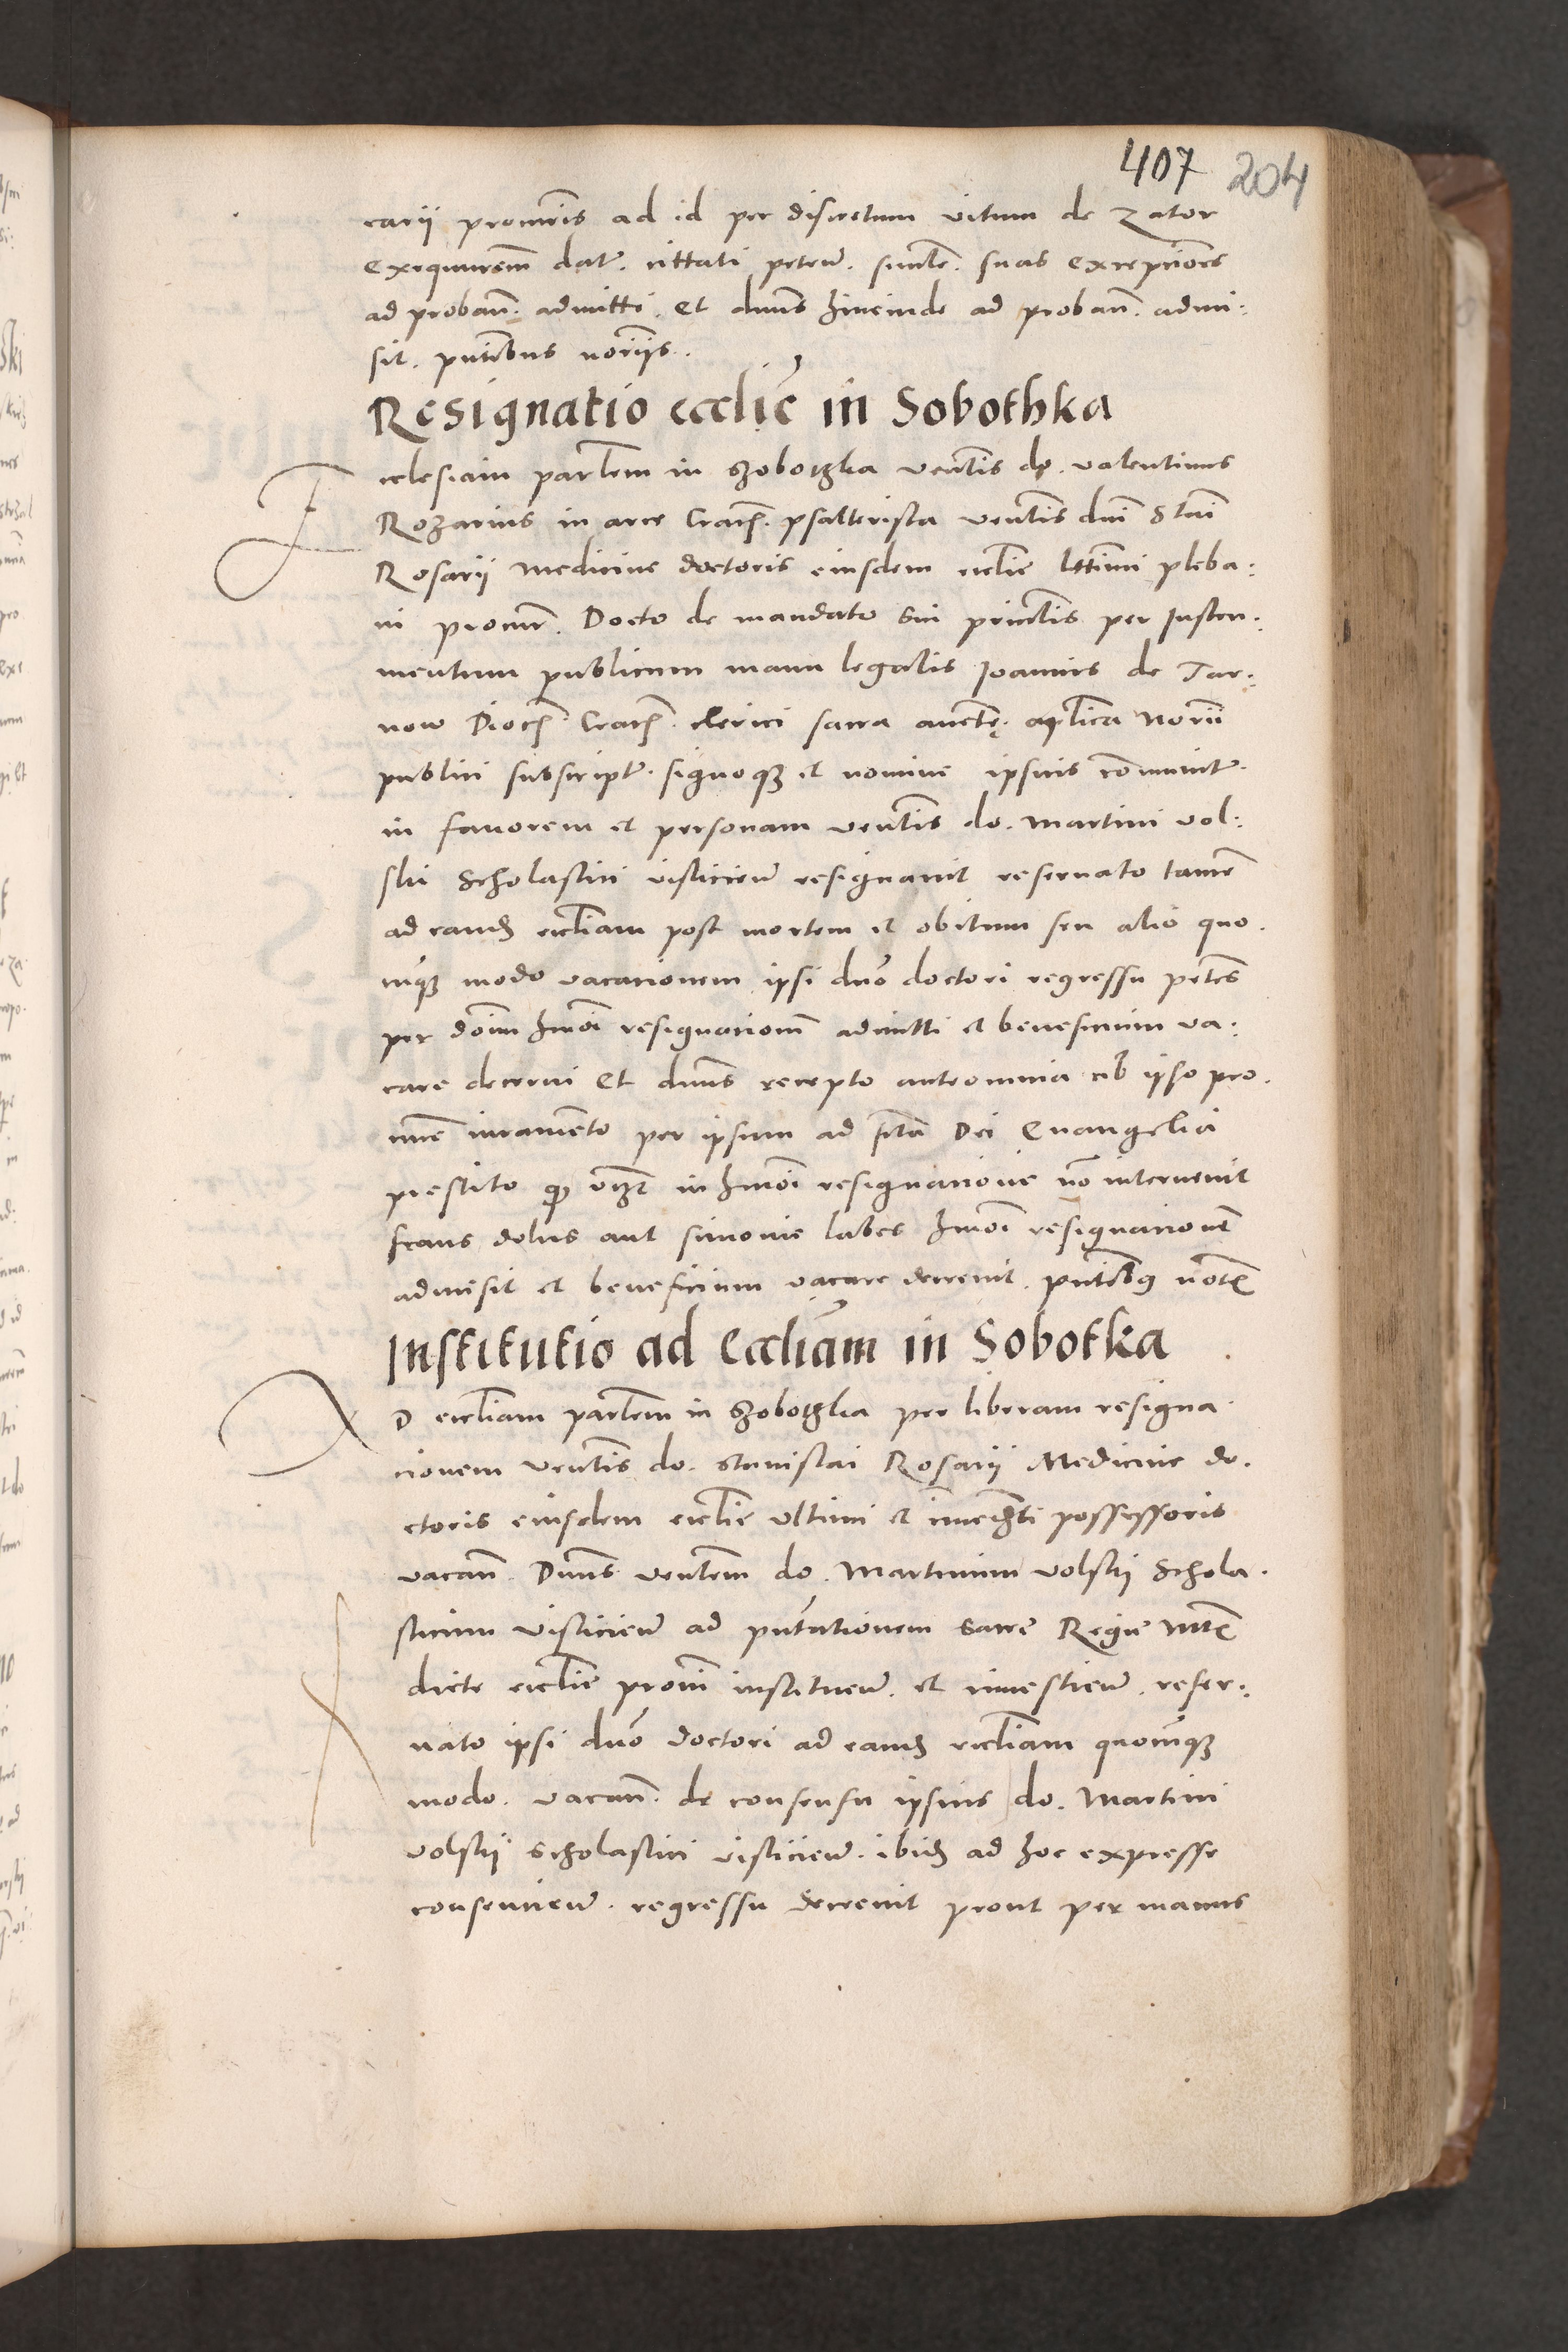 407 204
carii procuratoris ad id per discretum vitum de Zator
exequutorem dat. cittati peten. simile. suas exceptiones
ad proban. admitti. Et dnus hincinde ad proban. admi:
sit. pntibus notariis.
Resignatio ecclie in Sobothka
Ecclesiam parlem in Szobotzka venlis do. valentinus
Rozarius in arce Crach. psalterista venlis dni Stai
Rosarii Medicine doctoris eiusdem ecclie lttimi pleba:
ni procur. Docto de mandato sui principlis per Instru:
mentum publicum manu legalis Joannis de Tar:
now Dioch. Crach. clerici sacra aucte. aplica Notrii
publici subscript. signoqz et nomine ipsius communit.
in favorem et personam venlis do. Martini vol:
ski Scholastici visliciem resignavit reservato tamen
ad eandem eccliam post mortem et obitum seu alio quo
cunqz modo vacationem ipsi dno doctori regressu petens
per dominum hmoi resignationem admitti et beneficium va:
care decerni Et dnus recepto anteomnia ab ipso pro.
curatore iuramento per ipsum ad scta Dei Evangelia
prestito qz in hmoi resignatione non intervenit
fraus dolus aut simonie labes hmoi resignationem
admisit et beneficium vacare decrevit. pntibus notariis
Institutio ad Eccliam in Sobotka
AD eccliam parlem in Szobotzka per liberam resigna
cionem venlis do. Stanislai Rosarii Medicine do.
ctoris eiusdem ecclie ultimi et immediati possessoris
vacan. Dnus venlem do. Martinum volskij Schola.
sticum visliciem ad pntationem Sacre Regie Mtis
dicte ecclie proum instituen. et investien. reser:
vato ipsi dno doctori ad eandem eccliam quocunqz
modo. vacan. de consensu ipsius do. Martini
volskij Scholastici visliciem. ibidem ad hoc expresse
consencien. regressu decrevit prout per manus